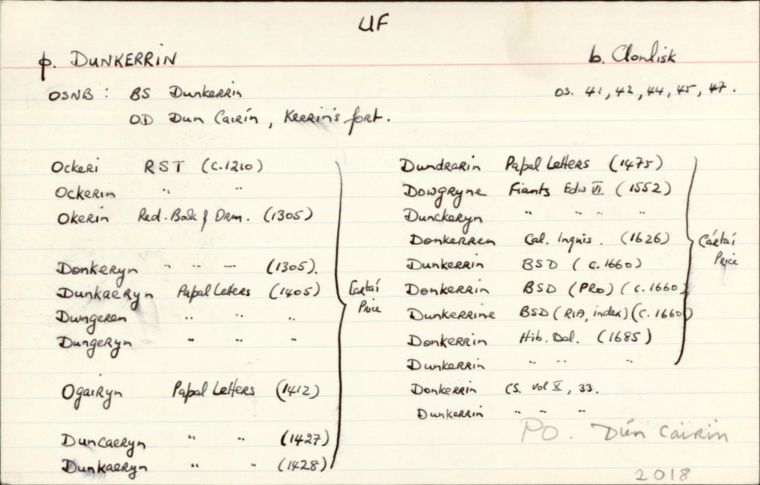 UF
p. DUNKERRIN
b. Clonlisk
OSNB : BS Dunkerrin
OS. 41, 42, 44, 45, 47.
OD Dun Cairín, Kerrin's fort.
Ockeri RST (c.1210)
Ockerin " "
Okerin Red. Book of Orm. (1305)
Donkeryn " " — (1305).
Dunkaeryn Papal Letters (1405)
Dungeren " " "
Dungeryn " " "
Ogairyn Papal Letters (1412)
Duncaeryn " " (1427)
Dunkaeryn " " (1428)
Cártaí
Price
Dundrarin Papal Letters (1475)
Dowgryne Fiants Edw VI (1552)
Dunckeryn " " " "
Donkerren Cal. Inquis. (1626)
Dunkerrin BSD (c.1660)
Donkerrin BSD (PRO) (c.1660)
Dunkerrine BSD (RIA, index) (c.1660)
Donkerrin Hib. Del. (1685)
Dunkerrin " " "
Cártaí
Price
Donkerrin CS. vol X, 33.
Dunkerrin " " "
PO. Dún Cairin
2018